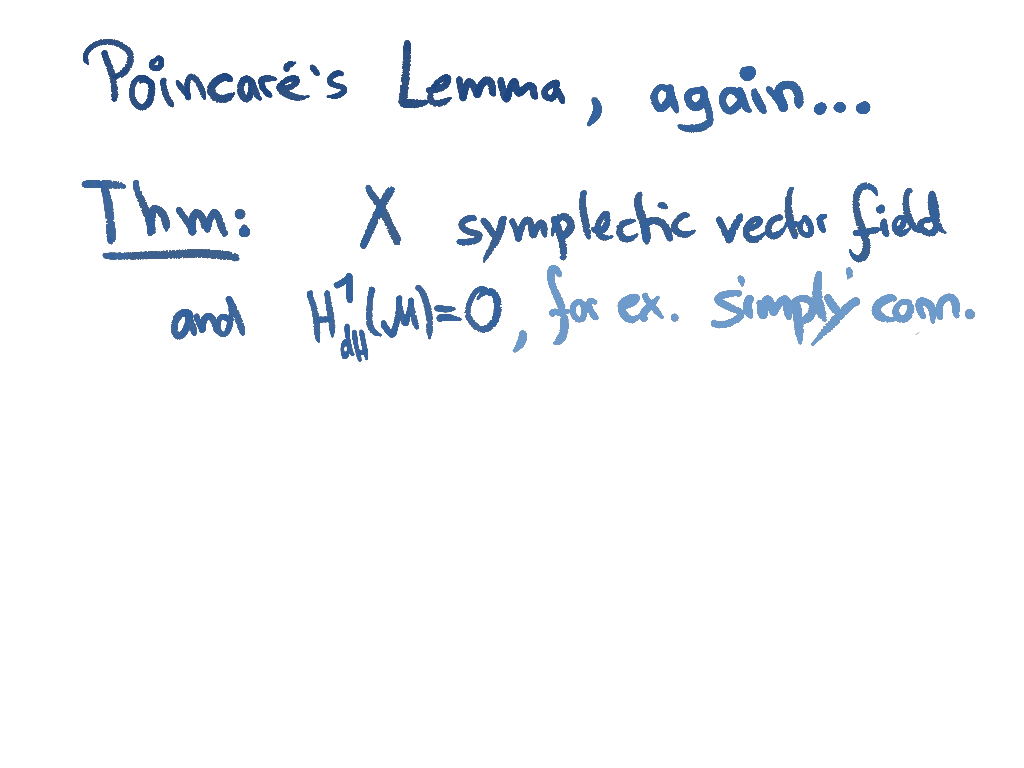 Poincaré's Lemma, again...
Thm: X symplectic vector field
and H¹_dH(M)=0, for ex. simply conn.